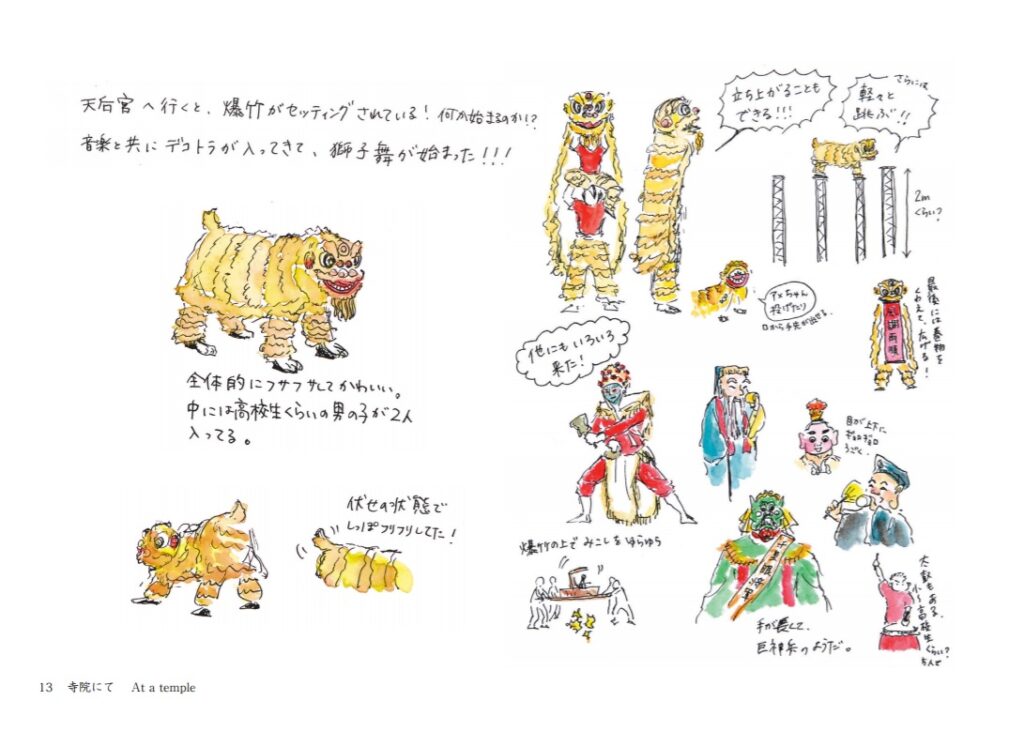 天后宮へ行くと、爆竹がセッティングされている！何か始まるのか!?
音楽と共にデコトラが入ってきて、獅子舞が始まった！！！
全体的にフサフサしてかわいい。
中には高校生くらいの男の子が2人
入ってる。
伏せの状態で
しっぽフリフリしてた！
立ち上がることも
できる!!!
さらには
軽々と
跳ぶ!!
2m
くらい？
アメちゃん
投げたり
口から手先が出せる。
最後には巻物を
くわえて、広げる！
風調雨順
他にもいろいろ
来た！
目が上下に
ギョロギョロ
うごく。
爆竹の上でみこしをゆらゆら
千里眼将軍
手が長くて、
巨神兵のようだ。
太鼓もある。
小〜高校生
くらい？
13 寺院にて At a temple